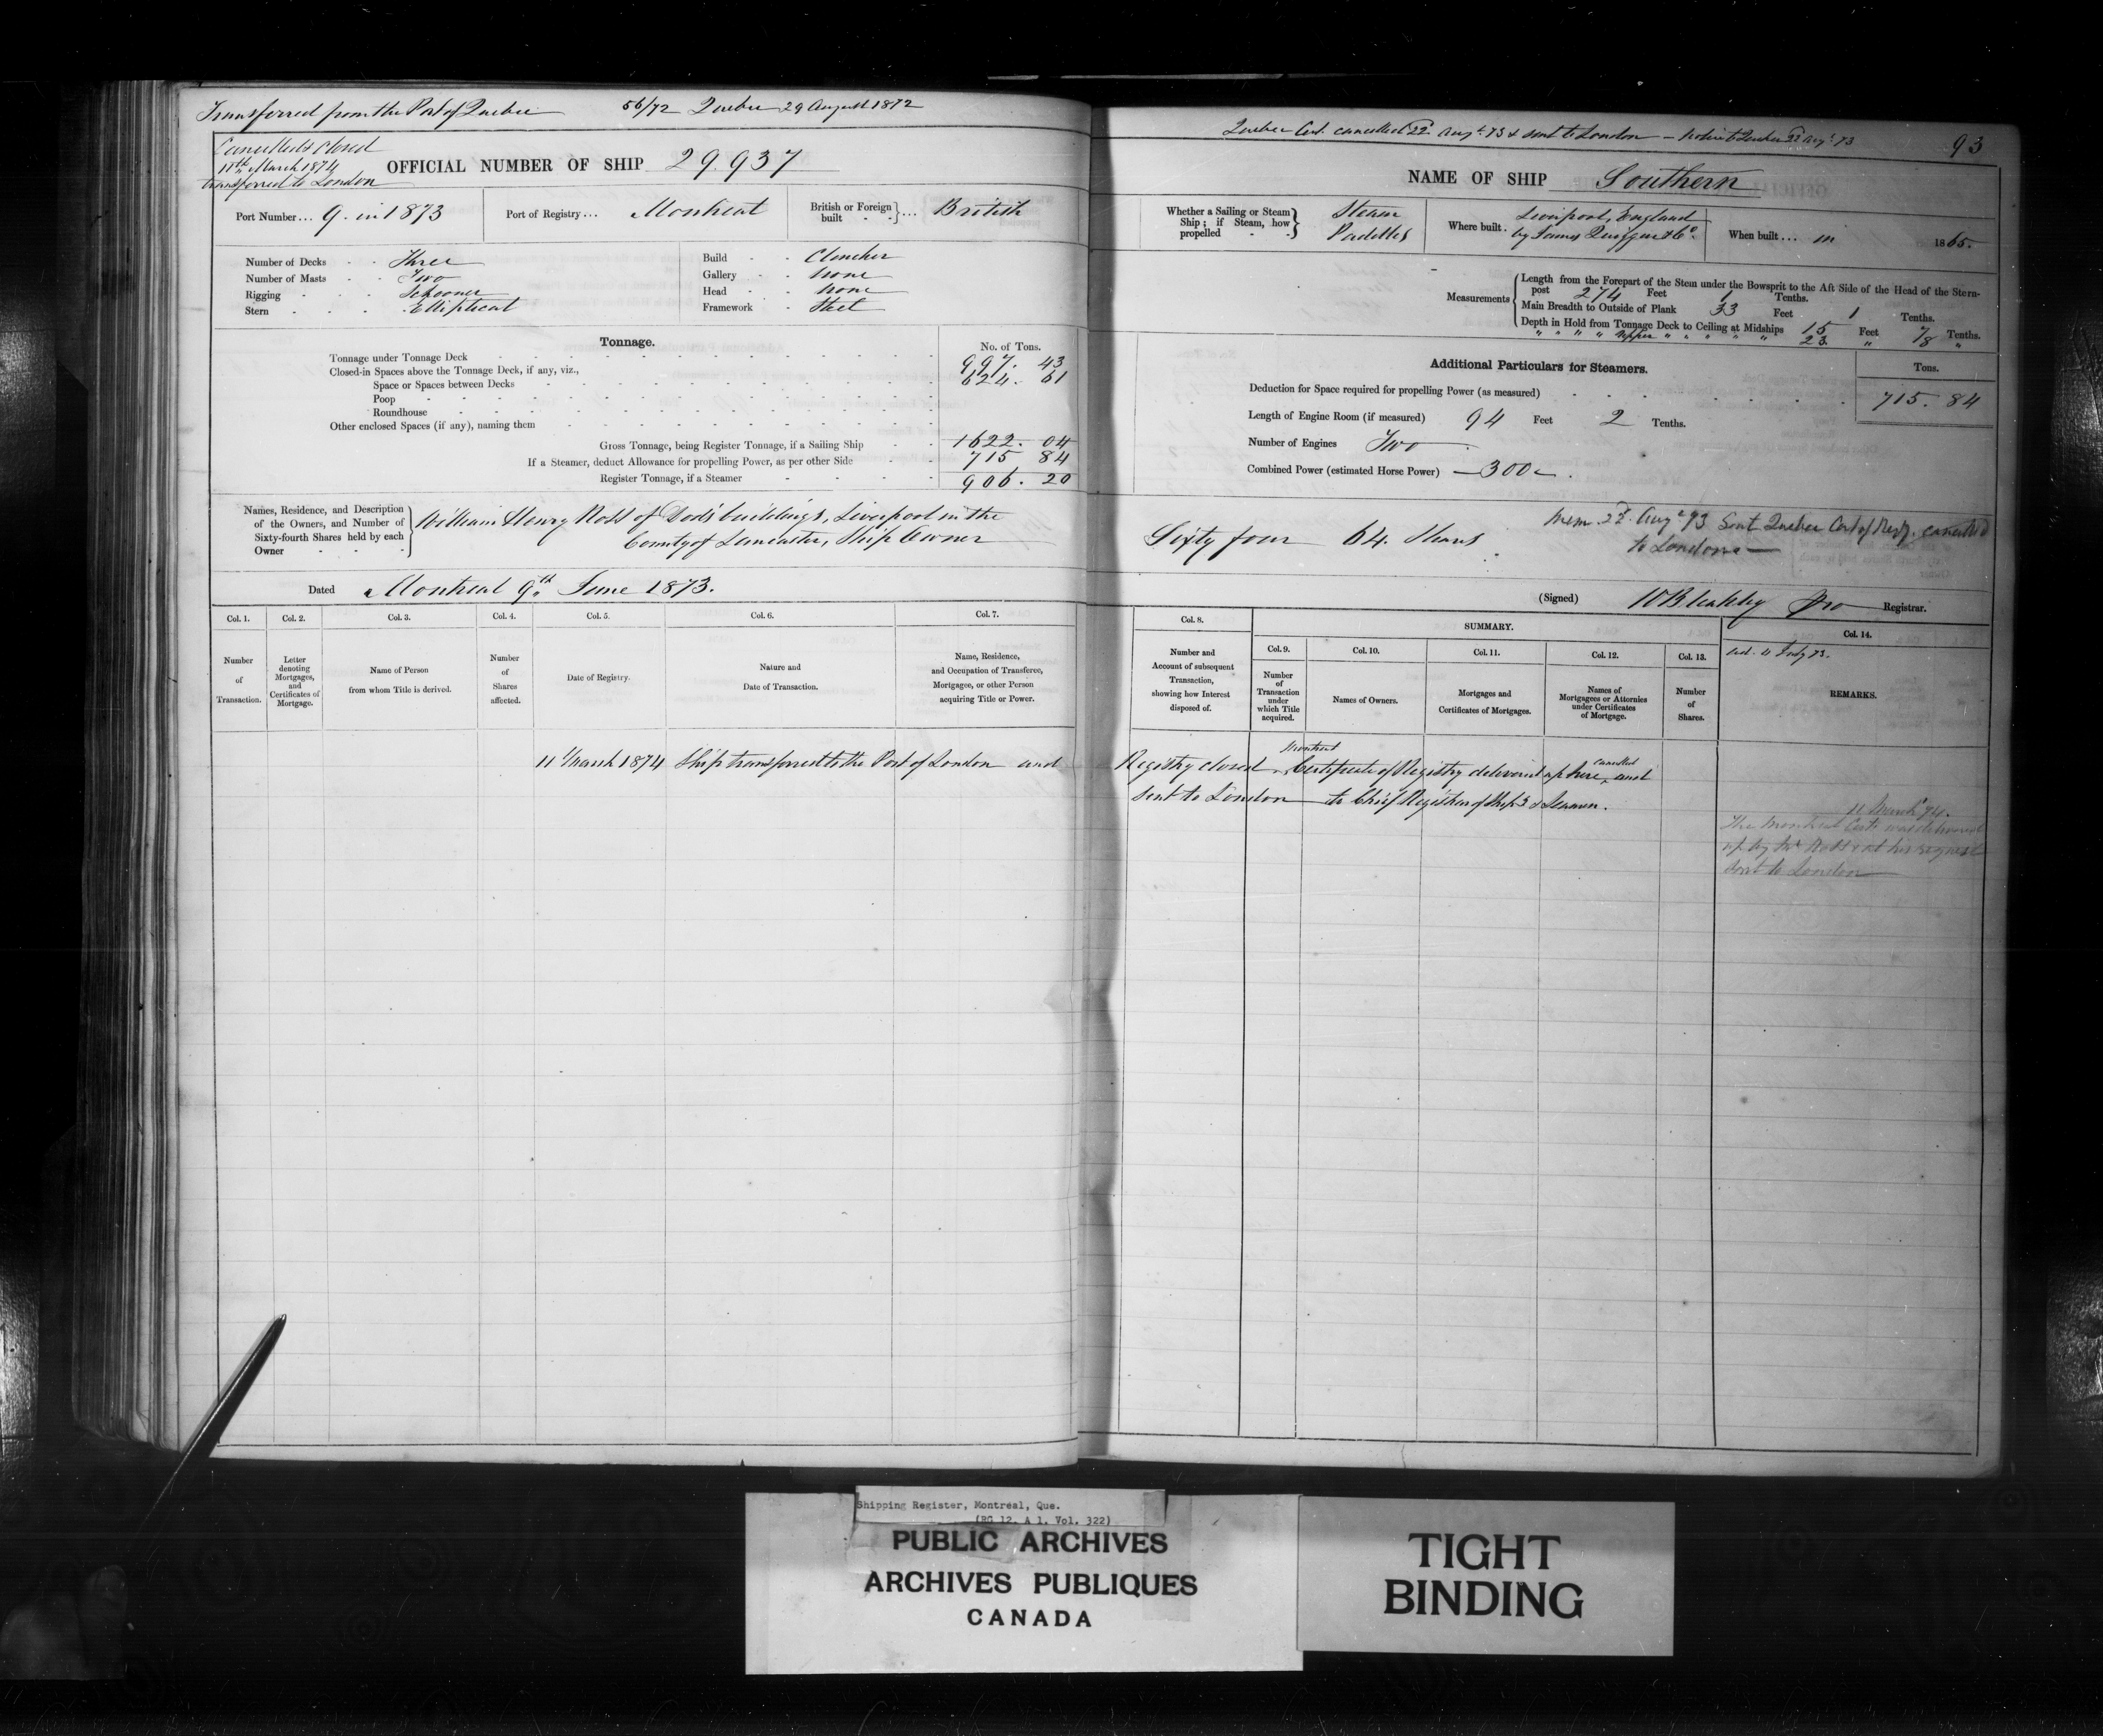 Transferred from the Port of Quebec 56/72 Quebec 29 August 1872
Cancelled & closed
11th March 1874
transferred to London
OFFICIAL NUMBER OF SHIP 29.937
Port Number... 9. in 1873 Port of Registry... Montreal British or Foreign built ... British
Number of Decks - - Three
Number of Masts - - Two
Rigging - - - Schooner
Stern - - - Elliptical
Build - - Clencher
Gallery - - None
Head - - None
Framework - Steel
Tonnage. No. of Tons.
Tonnage under Tonnage Deck 997. 43
Closed-in Spaces above the Tonnage Deck, if any, viz.,
Space or Spaces between Decks 624. 61
Poop
Roundhouse
Other enclosed Spaces (if any), naming them
Gross Tonnage, being Register Tonnage, if a Sailing Ship 1622. 04
If a Steamer, deduct Allowance for propelling Power, as per other Side 715 84
Register Tonnage, if a Steamer 906. 20
Names, Residence, and Description
of the Owners, and Number of
Sixty-fourth Shares held by each
Owner
William Henry Ross of buildings, Liverpool in the
County of Lancaster, Ship Owner
Dated Montreal 9th June 1873.
Col. 1. Col. 2. Col. 3. Col. 4. Col. 5. Col. 6. Col. 7.
Number of Transaction.
Letter denoting Mortgages, and Certificates of Mortgage.
Name of Person from whom Title is derived.
Number of Shares affected.
Date of Registry.
Nature and Date of Transaction.
Name, Residence, and Occupation of Transferee, Mortgagee, or other Person acquiring Title or Power.
11 March 1874 Ship transferred to the Port of London and
Quebec Cert. cancelled 22 Augt 73 & sent to London — Quebec 22 Augt 73
93
NAME OF SHIP Southern
Whether a Sailing or Steam Ship; if Steam, how propelled
Steam
Paddles
Where built. Liverpool, England
by James Quiggin & Co.
When built... in 1865.
Measurements
Length from the Forepart of the Stem under the Bowsprit to the Aft Side of the Head of the Stern-
post 274 Feet 1 Tenths.
Main Breadth to Outside of Plank 33 Feet 1 Tenths.
Depth in Hold from Tonnage Deck to Ceiling at Midships 15 Feet 7 Tenths.
" " " " Upper " " " " " 23. " 8 "
Additional Particulars for Steamers. Tons.
Deduction for Space required for propelling Power (as measured) 715. 84
Length of Engine Room (if measured) 94 Feet 2 Tenths.
Number of Engines Two
Combined Power (estimated Horse Power) — 300 .
Sixty four 64. Shares
Mem. 22. Augt 73 Sent Quebec Cert of Regy. cancelled
to London —
(Signed) Registrar.
Col. 8. SUMMARY. Col. 14.
Col. 9. Col. 10. Col. 11. Col. 12. Col. 13.
Number and Account of subsequent Transaction, showing how Interest disposed of.
Number of Transaction under which Title acquired.
Names of Owners.
Mortgages and Certificates of Mortgages.
Names of Mortgagees or Attornies under Certificates of Mortgage.
Number of Shares.
11 July 73.
REMARKS.
Montreal cancelled
Registry closed Certificate of Registry delivered up here, and
sent to London — to Chief Registrar of Ships & Seamen.
11 March 74.
The Montreal Cert. was delivered
up by Mr Ross & at his request
sent to London
Shipping Register, Montreal, Que.
(RG 12, A 1, Vol. 322)
PUBLIC ARCHIVES
ARCHIVES PUBLIQUES
CANADA
TIGHT
BINDING